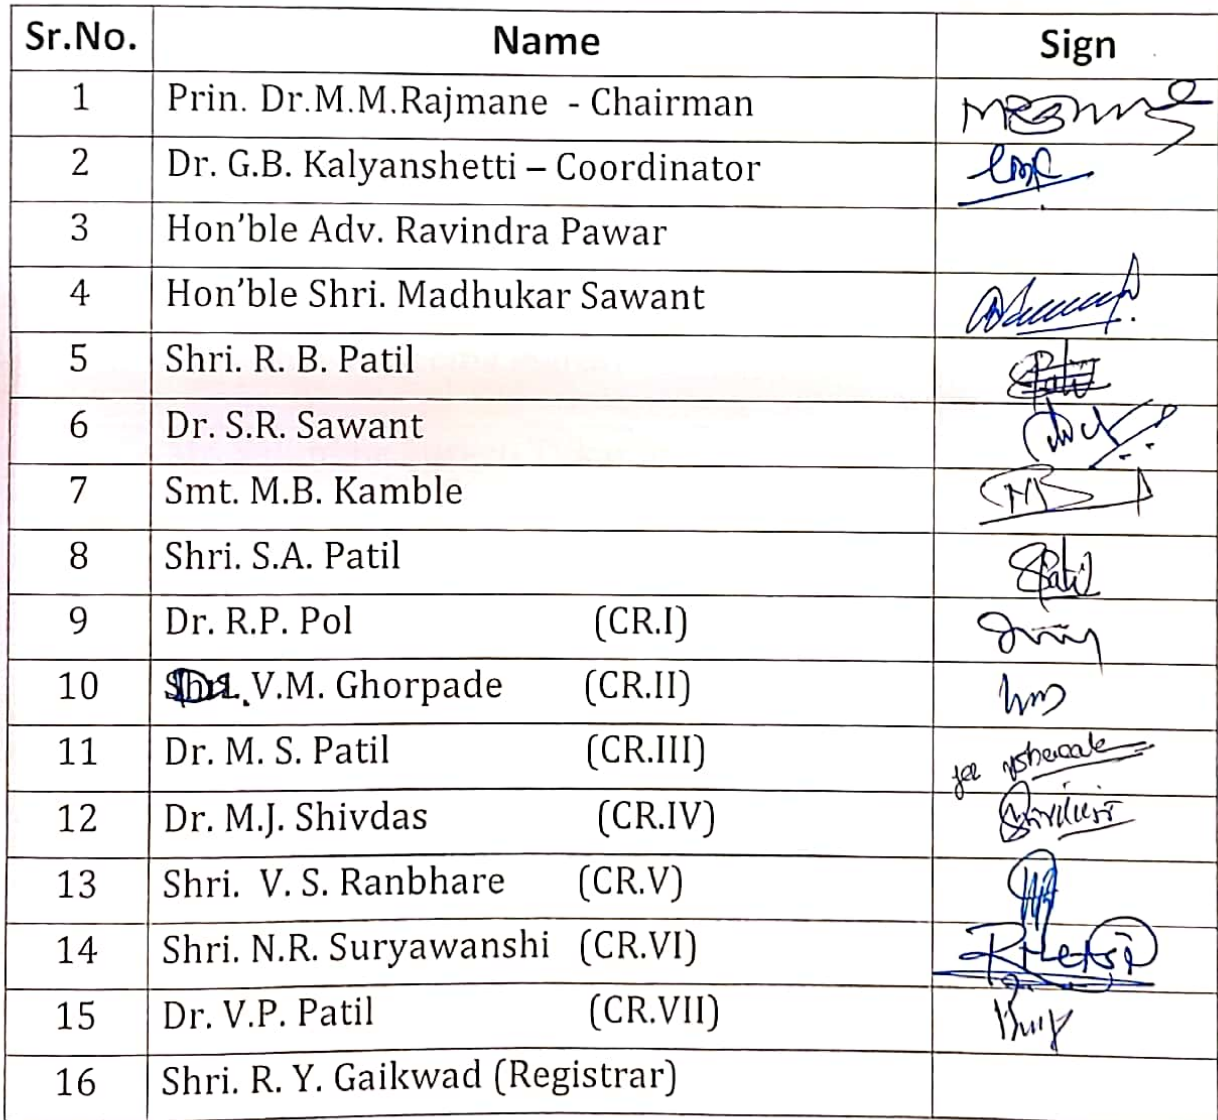 Sr.No. Name Sign
1 Prin. Dr.M.M.Rajmane - Chairman
2 Dr. G.B. Kalyanshetti – Coordinator
3 Hon'ble Adv. Ravindra Pawar
4 Hon'ble Shri. Madhukar Sawant
5 Shri. R. B. Patil Patil
6 Dr. S.R. Sawant
7 Smt. M.B. Kamble
8 Shri. S.A. Patil SPatil
9 Dr. R.P. Pol (CR.I)
10 Dr. V.M. Ghorpade (CR.II)
11 Dr. M. S. Patil (CR.III)
12 Dr. M.J. Shivdas (CR.IV)
13 Shri. V. S. Ranbhare (CR.V)
14 Shri. N.R. Suryawanshi (CR.VI)
15 Dr. V.P. Patil (CR.VII)
16 Shri. R. Y. Gaikwad (Registrar)